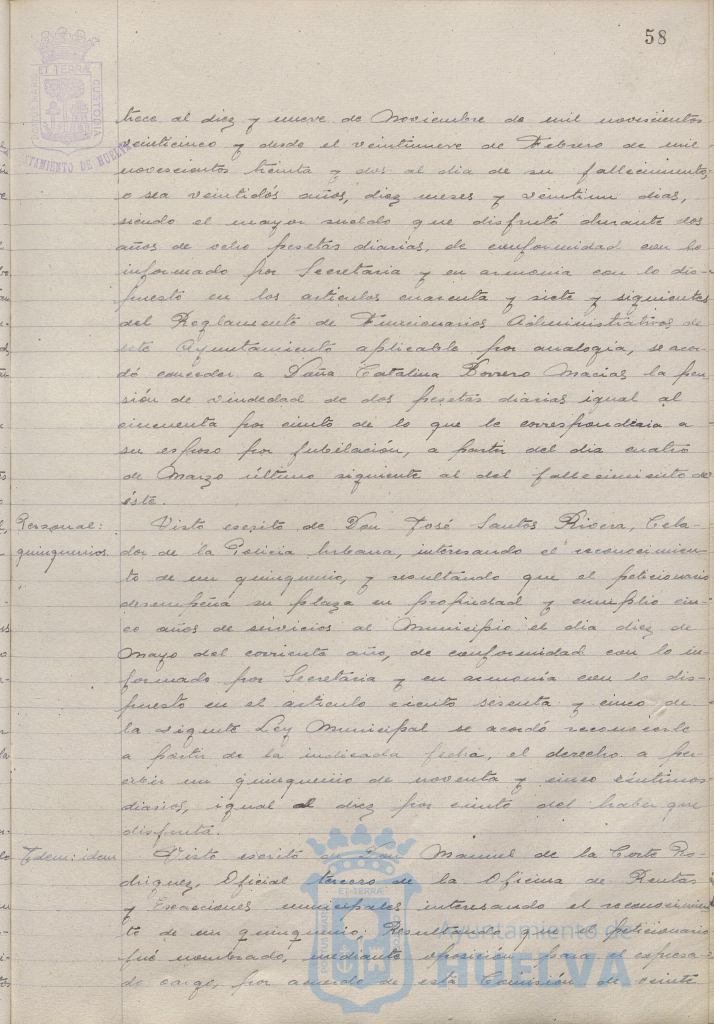 58
trece al diez y nueve de Noviembre de mil novecientos
veinticinco y desde el veintinueve de Febrero de mil
novescientos treinta y dos al dia de su fallecimiento,
o sea veintidós años, diez meses y veintiun dias,
siendo el mayor sueldo que disfrutó durante dos
años de ocho pesetas diarias, de conformidad con lo
informado por Secretaria y en armonia con lo dis-
puesto en los articulos cuarenta y siete y siguientes
del Reglamento de Funcionarios Administrativos de
este Ayuntamiento aplicable por analogia, se acor-
dó conceder a Doña Catalina Borrero Macias la pen
sión de viudedad de dos pesetas diarias igual al
cincuenta por ciento de lo que le corresponderia a
su esposo por jubilación, a partir del dia cuatro
de Marzo último siguiente al del fallecimiento de
éste.
Personal:
quinquenios.
Visto escrito de Don José Santos Rivera, Cela-
dor de la Policia Urbana, interesando el reconocimien-
to de un quinquenio, y resultando que el peticionario
desempeña su plaza en propiedad y cumplio cin-
co años de servicios al Municipio el dia diez de
Mayo del corriente año, de conformidad con lo in-
formado por Secretaria y en armonia con lo dis-
puesto en el articulo ciento sesenta y cinco de
la vigente Ley Municipal se acordó reconocerle
a partir de la indicada fecha, el derecho a per-
cibir un quinquenio de noventa y cinco céntimos
diarios, igual al diez por ciento del haber que
disfruta.
Idem: idem
Visto escrito de Don Manuel de la Corte Ro-
driguez, Oficial tercero de la Oficina de Rentas
y Exacciones municipales interesando el reconocimien
to de un quinquenio; Resultando que el peticionario
fué nombrado, mediante oposición, para el expresa-
do cargo, por acuerdo de esta Comisión de veinte
ET TERRÆ
CUSTODIA
PORTUS MARIS
AYUNTAMIENTO DE HUELVA
Ayuntamiento de
HUELVA